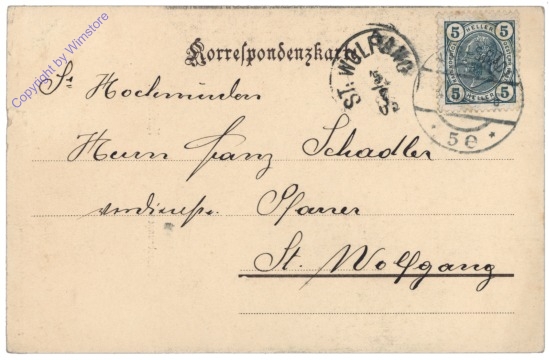 Korrespondenzkarte
ST. WOLFGANG
5 HELLER 5
5 5
5e
Sr Hochwürden
Herrn Franz Schadler
Pfarrer
St. Wolfgang
Copyright by Wimstore